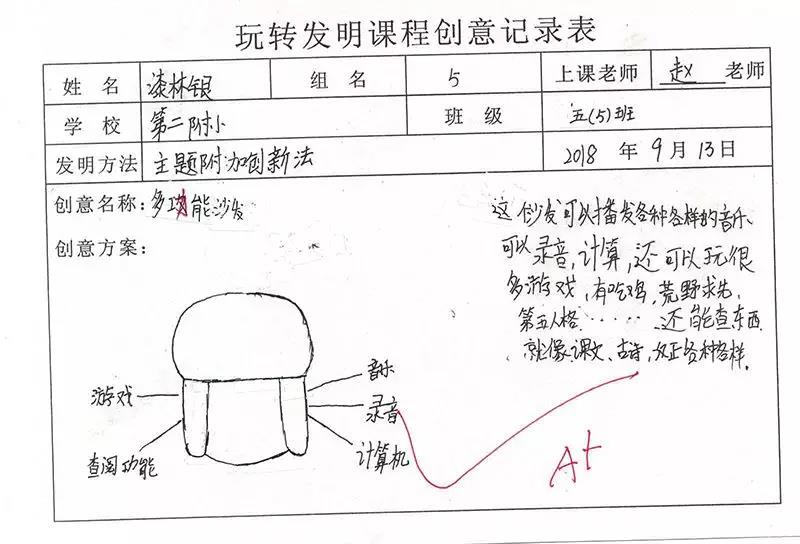 玩转发明课程创意记录表
姓名 漆林银 组名 5 上课老师 赵 老师
学校 第二附小 班级 五(5)班
发明方法 主题附加创新法 2018 年 9 月 13 日
创意名称:多功能沙发
创意方案:
这个沙发可以播发各种各样的音乐
可以录音,计算,还可以玩很
多游戏,有吃鸡,荒野求生,
第五人格……还能查东西
就像课文、古诗,反正各种各样。
游戏
查阅功能
音乐
录音
计算机
A+